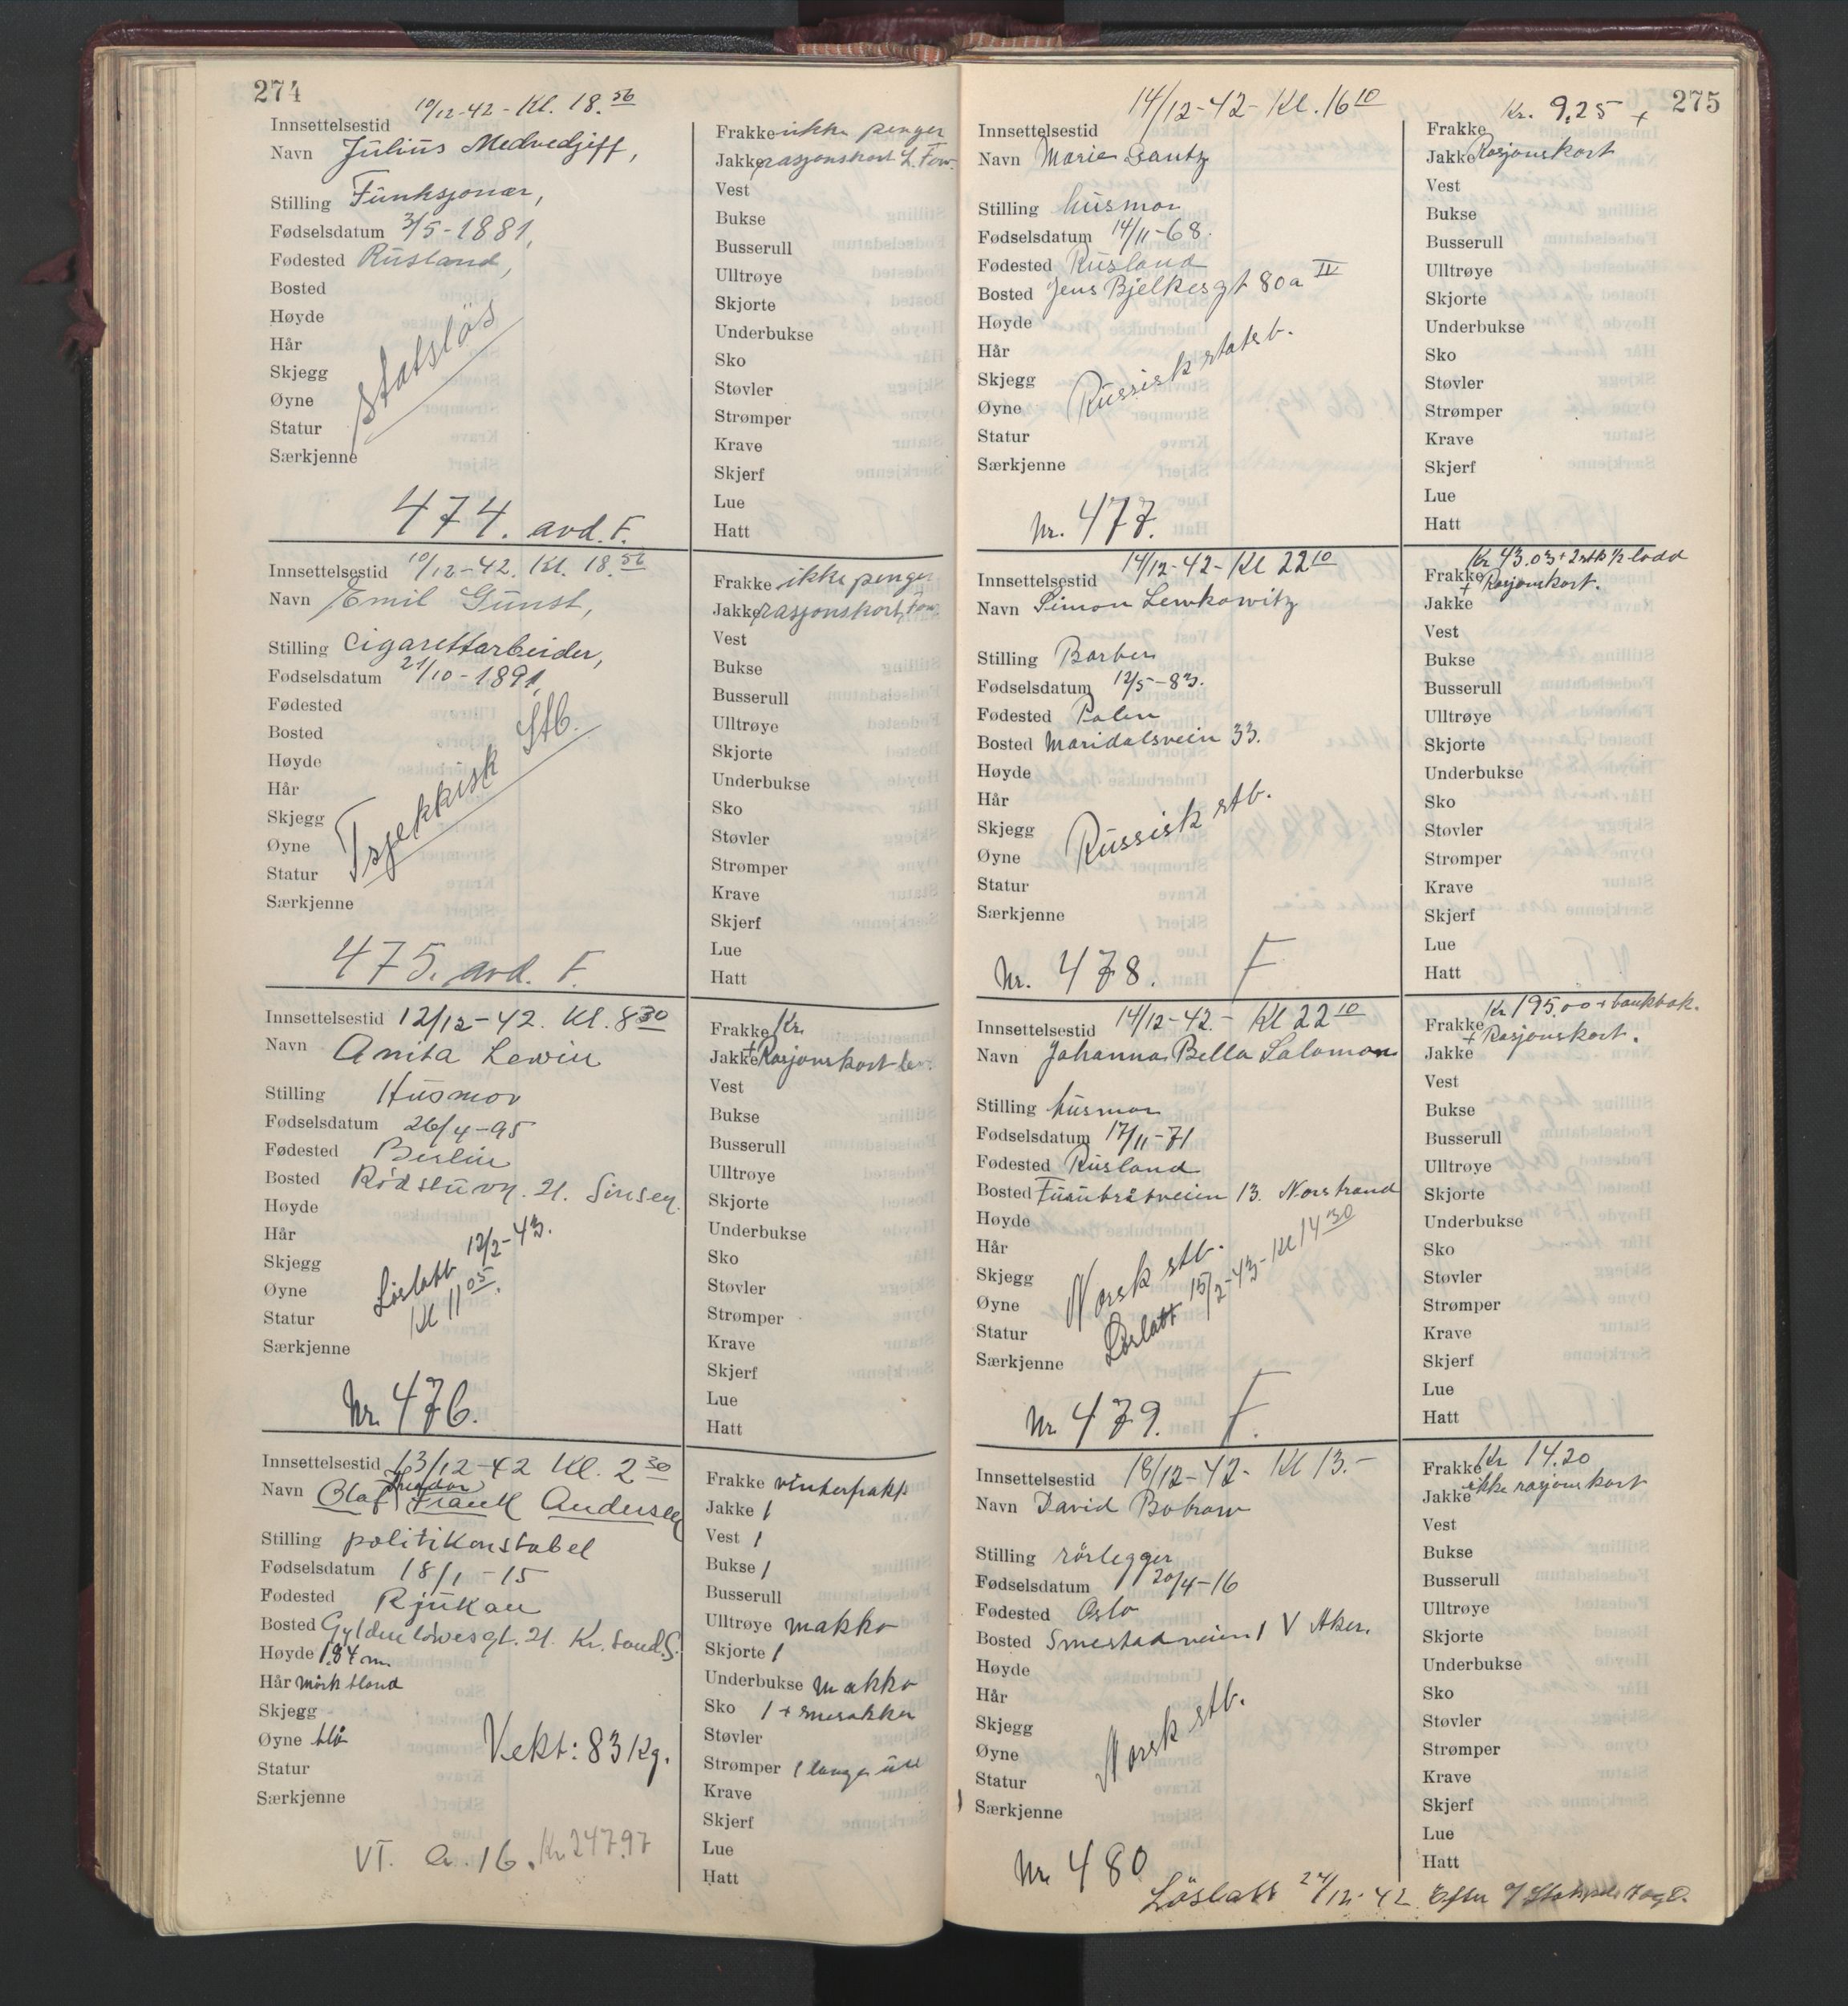 274
Innsettelsestid 10/12-42 - Kl. 18.56
Navn Julius Medvedjeff,
Stilling Funksjonær,
Fødselsdatum 3/5-1881,
Fødested Rusland,
Bosted
Høyde
Hår
Skjegg
Øyne
Statur
Særkjenne
Statsløs
474. avd. F.
Frakke ikke penger
Jakke rasjonskort L. Fow.
Vest
Bukse
Busserull
Ulltrøye
Skjorte
Underbukse
Sko
Støvler
Strømper
Krave
Skjerf
Lue
Hatt
Innsettelsestid 10/12-42. Kl. 18.56
Navn Emil Gunst,
Stilling Cigarettarbeider,
Fødselsdatum 21/10-1891,
Fødested
Bosted
Høyde
Hår
Skjegg
Øyne
Statur
Særkjenne
Tsjekkisk Stb.
475. avd. F.
Frakke ikke penger
Jakke rasjonskort,
Vest
Bukse
Busserull
Ulltrøye
Skjorte
Underbukse
Sko
Støvler
Strømper
Krave
Skjerf
Lue
Hatt
Innsettelsestid 12/12-42. Kl. 8 30
Navn Anita Lewin
Stilling Husmor
Fødselsdatum 26/4-95
Fødested Berlin
Bosted Rødstuvn. 21. Sinsen.
Høyde
Hår
Skjegg
Øyne
Statur
Særkjenne
Løslatt 12/2-43.
Kl 11 05.
Nr. 476.
Frakke Kr.
Jakke + Rasjonskort
Vest
Bukse
Busserull
Ulltrøye
Skjorte
Underbukse
Sko
Støvler
Strømper
Krave
Skjerf
Lue
Hatt
Innsettelsestid 13/12-42 Kl. 2 30
Navn Olaf Frank Andersen
Stilling politikonstabel
Fødselsdatum 18/1-15
Fødested Rjukan
Bosted Gyldenløwesgt. 21. Kr. sand S.
Høyde 1.84 m
Hår mørk blond
Skjegg
Øyne blå
Statur
Særkjenne
Vekt: 83 Kg.
VI. A. 16. Kr 247.97
Frakke vinterfrakk
Jakke 1
Vest 1
Bukse 1
Busserull
Ulltrøye makko
Skjorte 1
Underbukse makko
Sko 1 +
Støvler
Strømper 1 lange ull
Krave
Skjerf
Lue
Hatt
275
Innsettelsestid 14/12-42 - Kl. 16 10
Navn Marie
Stilling husmor
Fødselsdatum 14/11-68.
Fødested Rusland
Bosted Jens Bjelkesgt 80a IV
Høyde
Hår
Skjegg
Øyne
Statur
Særkjenne
Russisk statsb.
Nr. 477.
Kr. 9,25 +
Frakke
Jakke Rasjonskort
Vest
Bukse
Busserull
Ulltrøye
Skjorte
Underbukse
Sko
Støvler
Strømper
Krave
Skjerf
Lue
Hatt
Innsettelsestid 14/12-42 - Kl 22 10
Navn Simon Lewkowitz
Stilling Barber
Fødselsdatum 12/5-83.
Fødested Polen
Bosted Maridalsveien 33.
Høyde
Hår
Skjegg
Øyne
Statur
Særkjenne
Russisk stb.
Nr. 478. F
Kr 43.03 + 2 stk 1/2 lodd
Frakke + Rasjonskort.
Jakke
Vest
Bukse
Busserull
Ulltrøye
Skjorte
Underbukse
Sko
Støvler
Strømper
Krave
Skjerf
Lue
Hatt
Innsettelsestid 14/12-42. - Kl 22 10
Navn Johanna Bella Salomon
Stilling husmor
Fødselsdatum 17/11-71
Fødested Rusland
Bosted Furubråtveien 13. Norstrand
Høyde
Hår
Skjegg
Øyne
Statur
Særkjenne
Norsk stb.
Løslatt 15/2-43 - Kl 14 30
Nr 479. F.
Kr 195.00 + bankbok.
Frakke + Rasjonskort.
Jakke
Vest
Bukse
Busserull
Ulltrøye
Skjorte
Underbukse
Sko
Støvler
Strømper
Krave
Skjerf
Lue
Hatt
Innsettelsestid 18/12-42 - Kl 13.-
Navn David Bobrow
Stilling rørlegger
Fødselsdatum 20/4-16
Fødested Oslo
Bosted Smestadveien 1 V Aker.
Høyde
Hår
Skjegg
Øyne
Statur
Særkjenne
Norsk stb.
Nr 480
Løslatt 24/12-42. Efter
Frakke Kr 14.20
Jakke ikke rasjonskort
Vest
Bukse
Busserull
Ulltrøye
Skjorte
Underbukse
Sko
Støvler
Strømper
Krave
Skjerf
Lue
Hatt